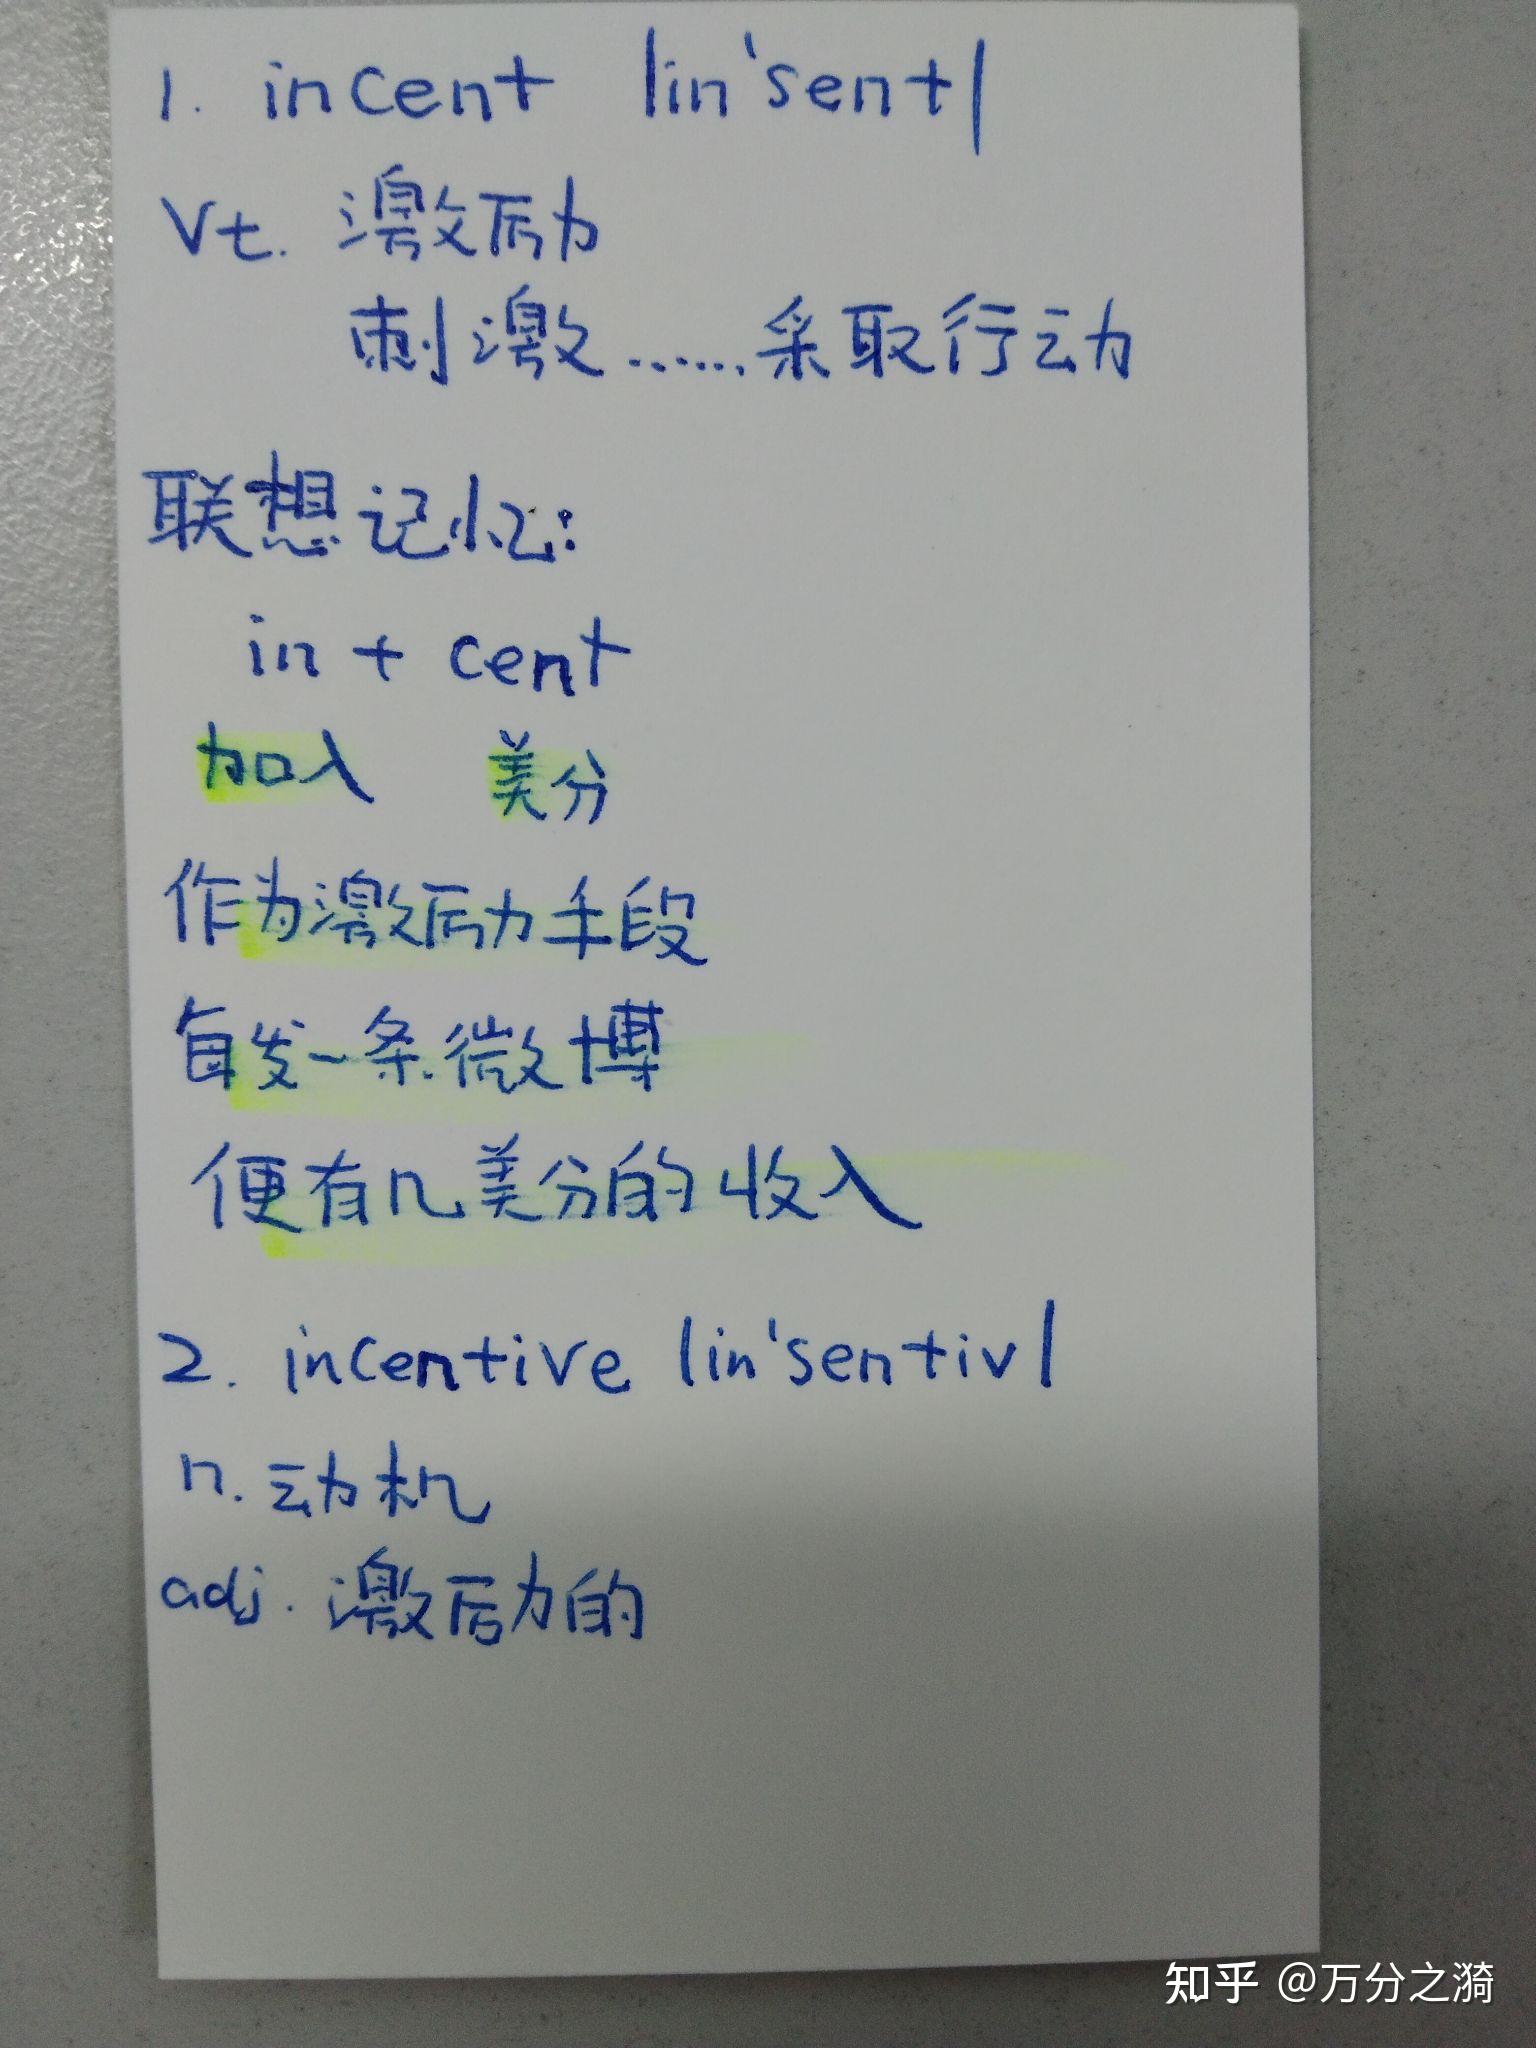 1. incent |in'sent|
Vt. 激励
刺激……采取行动
联想记忆:
in + cent
加入 美分
作为激励手段
每发一条微博
便有几美分的收入
2. incentive |in'sentiv|
n. 动机
adj. 激励的
知乎 @万分之漪